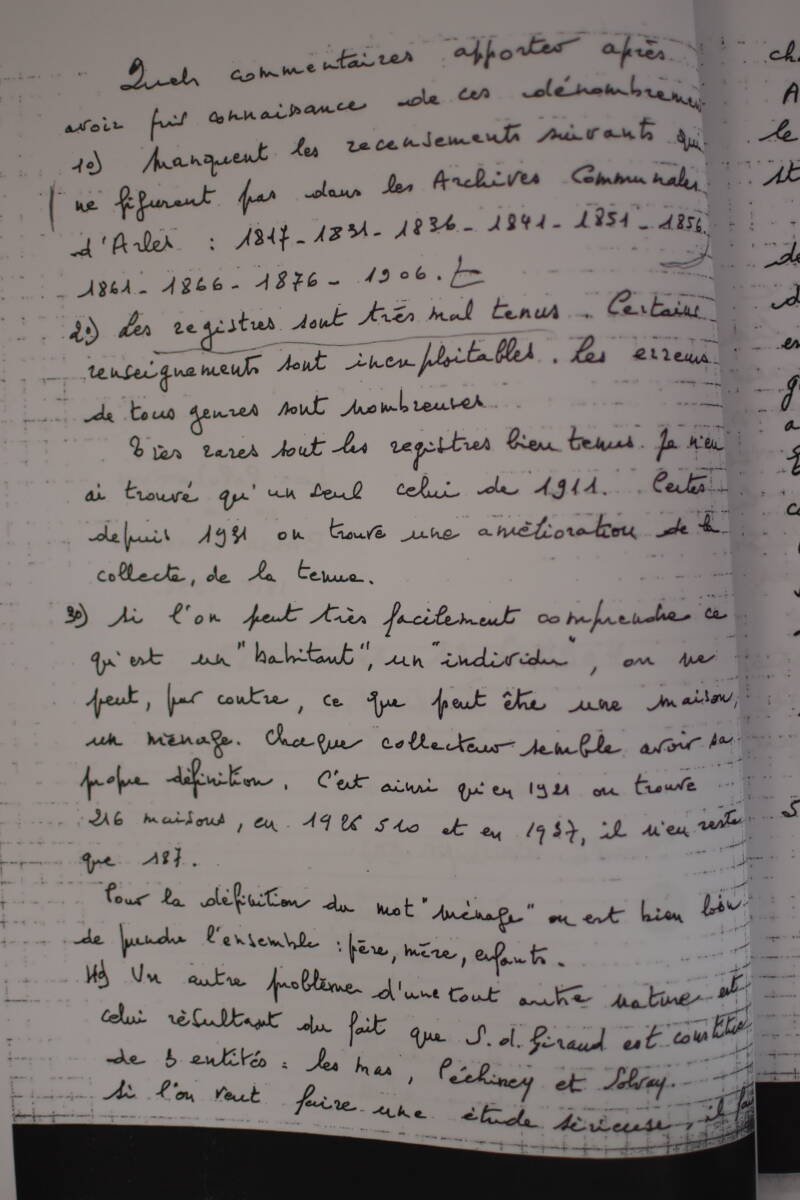 Quels commentaires apporter après
avoir pris connaissance de ces dénombremen
1°) Manquent les recensements suivants qui
ne figurent pas dans les Archives Communales
d'Arles : 1817 - 1831 - 1836 - 1841 - 1851 - 1856
1861 - 1866 - 1876 - 1906.
2°) Les registres sont très mal tenus. Certains
renseignements sont inexploitables. Les erreurs
de tous genres sont nombreuses
Très rares sont les registres bien tenus. Je n'en
ai trouvé qu'un seul celui de 1911. Certes
depuis 1931 on trouve une amélioration de la
collecte, de la tenue.
3°) Si l'on peut très facilement comprendre ce
qu'est un "habitant", un "individu", on ne
peut, par contre, ce que peut être une maison,
un ménage. Chaque collecteur semble avoir sa
propre définition. C'est ainsi qu'en 1921 on trouve
216 maisons, en 1926 510 et en 1937, il n'en reste
que 187.
Pour la définition du mot "ménage" on est bien loin
de prendre l'ensemble : père, mère, enfants.
4°) Un autre problème d'une tout autre nature est
celui résultant du fait que S.d. Giraud est constitué
de 3 entités : les mas, Péchiney et Solvay.
Si l'on veut faire une étude sérieuse, il fau
ch
A
le
st
de
d
es
g
a
c
S